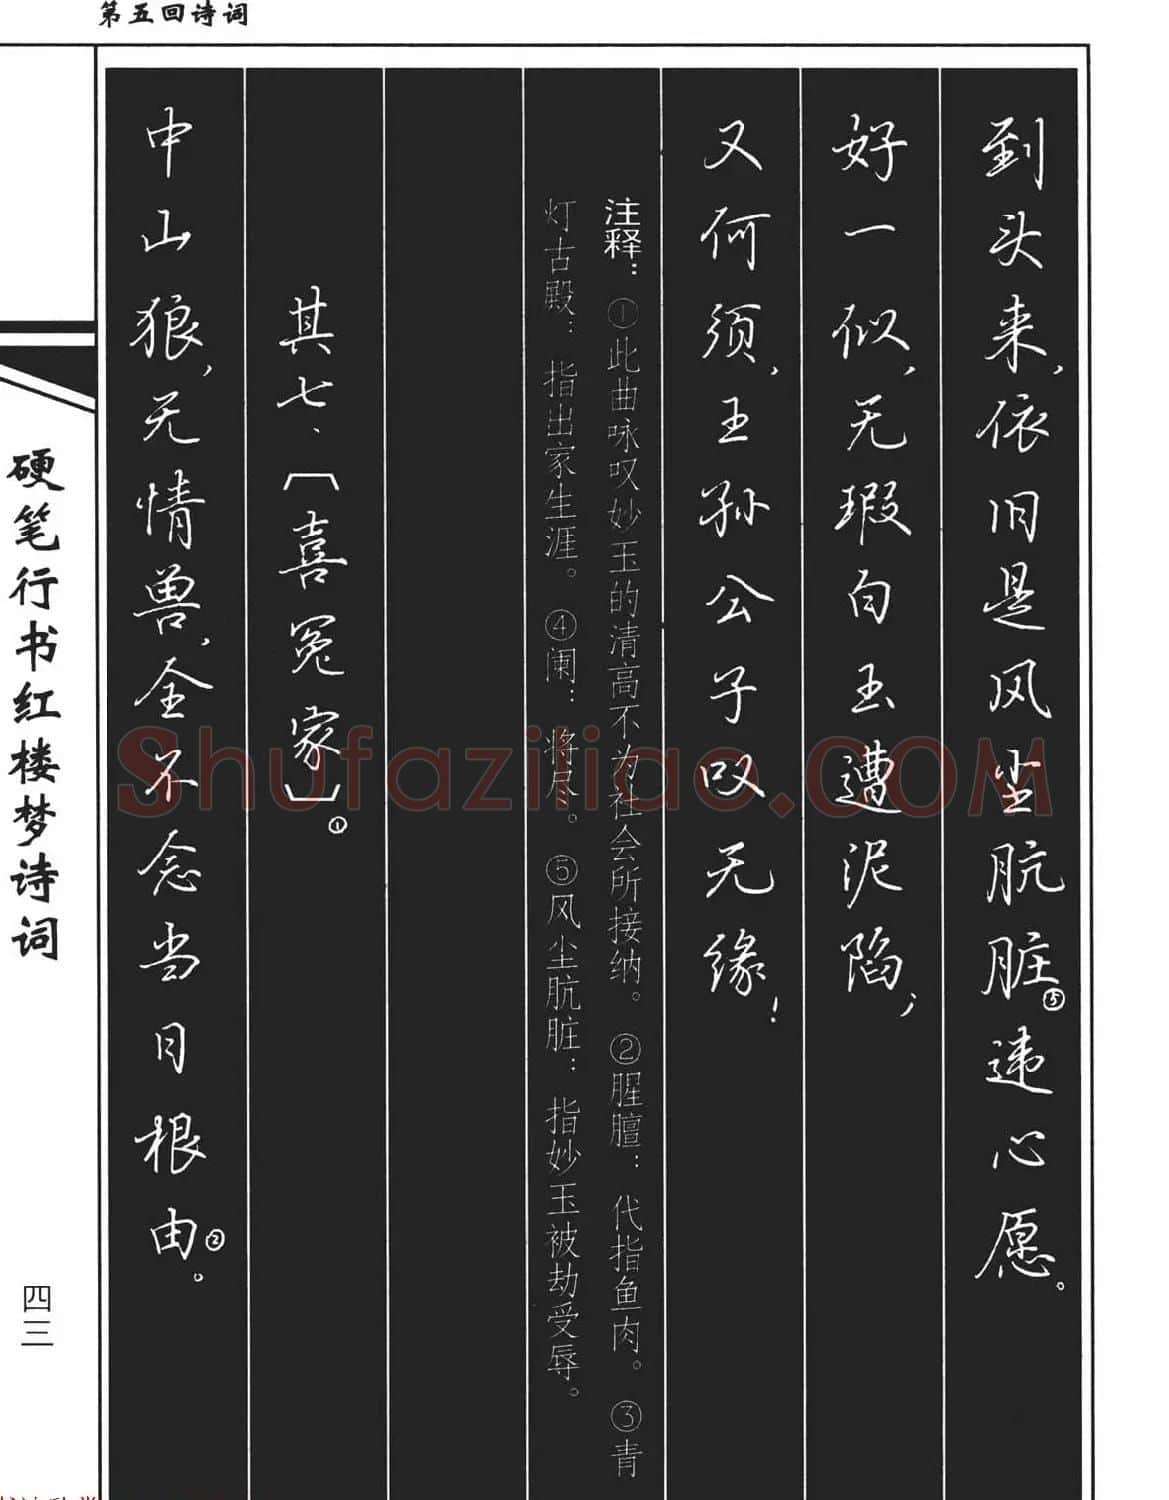 第五回诗词
到头来,依旧是风尘肮脏⑤违心愿。
好一似,无瑕白玉遭泥陷;
又何须,王孙公子叹无缘!
注释:①此曲咏叹妙玉的清高不为社会所接纳。②腥膻:代指鱼肉。③青
灯古殿:指出家生涯。④阑:将尽。⑤风尘肮脏:指妙玉被劫受辱。
其七、〔喜冤家〕①
中山狼,无情兽,全不念当日根由②。
硬笔行书红楼梦诗词
四三
Shufaziliao.COM